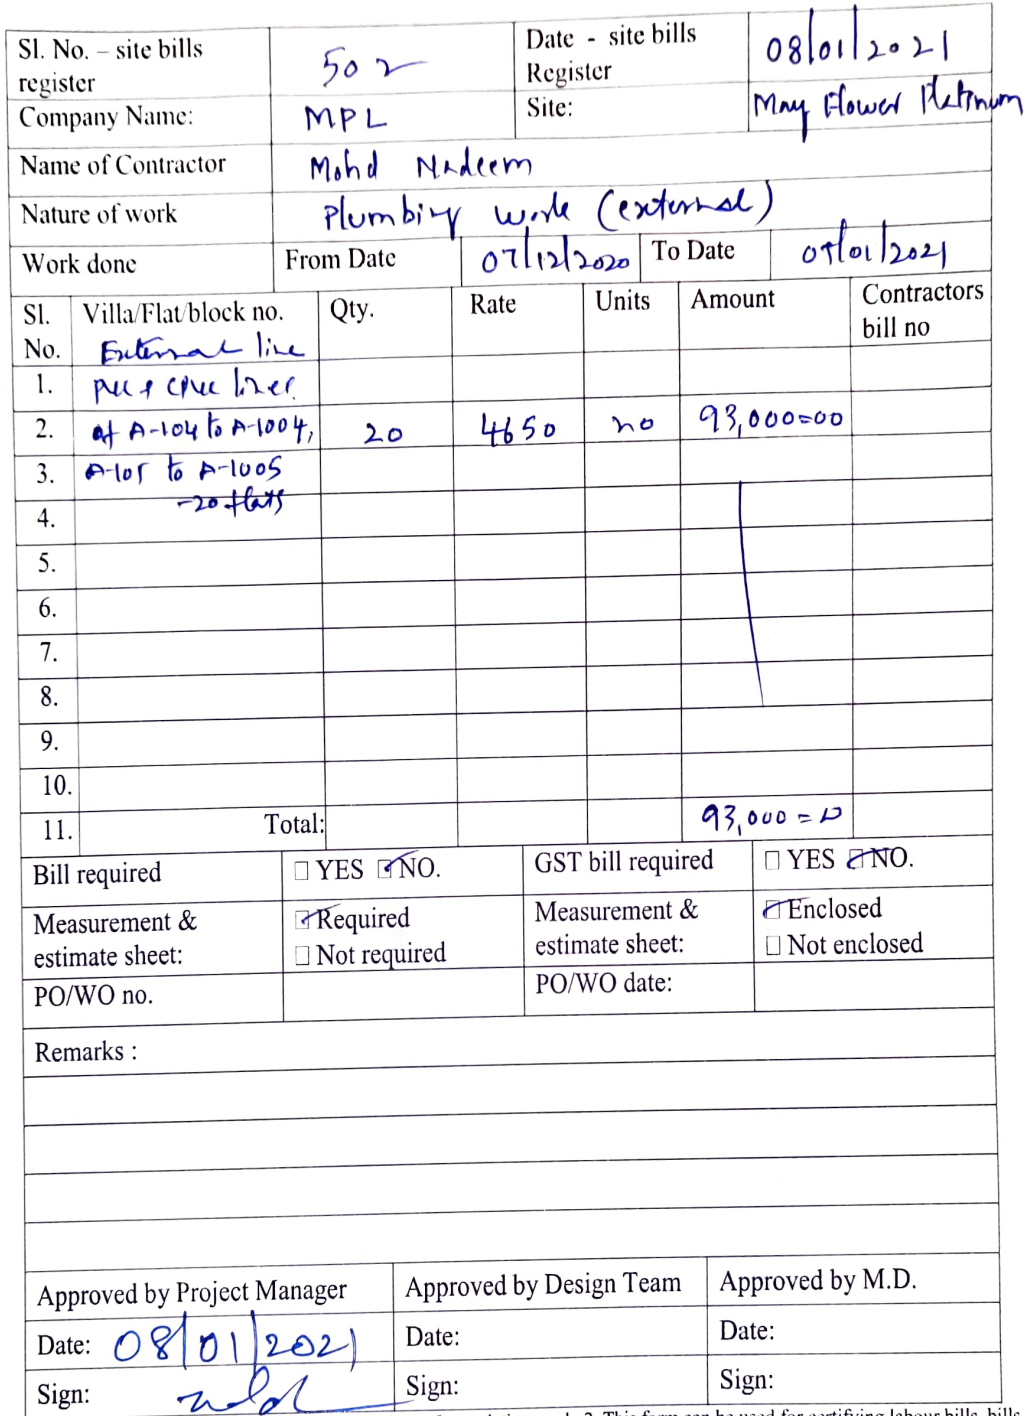 Sl. No. – site bills register 502 Date - site bills Register 08/01/2021
Company Name: MPL Site: May Flower Platinum
Name of Contractor Mohd Nadeem
Nature of work Plumbing work (external)
Work done From Date 07/12/2020 To Date 07/01/2021
Sl. No. Villa/Flat/block no. Qty. Rate Units Amount Contractors bill no
External line
1. pvc & cpvc lines
2. of A-104 to A-1004, 20 4650 no 93,000=00
3. A-105 to A-1005
-20 flats
4.
5.
6.
7.
8.
9.
10.
11. Total: 93,000=00
Bill required □ YES ☑ NO. GST bill required □ YES ☑ NO.
Measurement & estimate sheet: ☑ Required Measurement & estimate sheet: ☑ Enclosed
□ Not required □ Not enclosed
PO/WO no. PO/WO date:
Remarks :
Approved by Project Manager Approved by Design Team Approved by M.D.
Date: 08/01/2021 Date: Date:
Sign: Sign: Sign:
2. This form can be used for certifying labour bills, bills